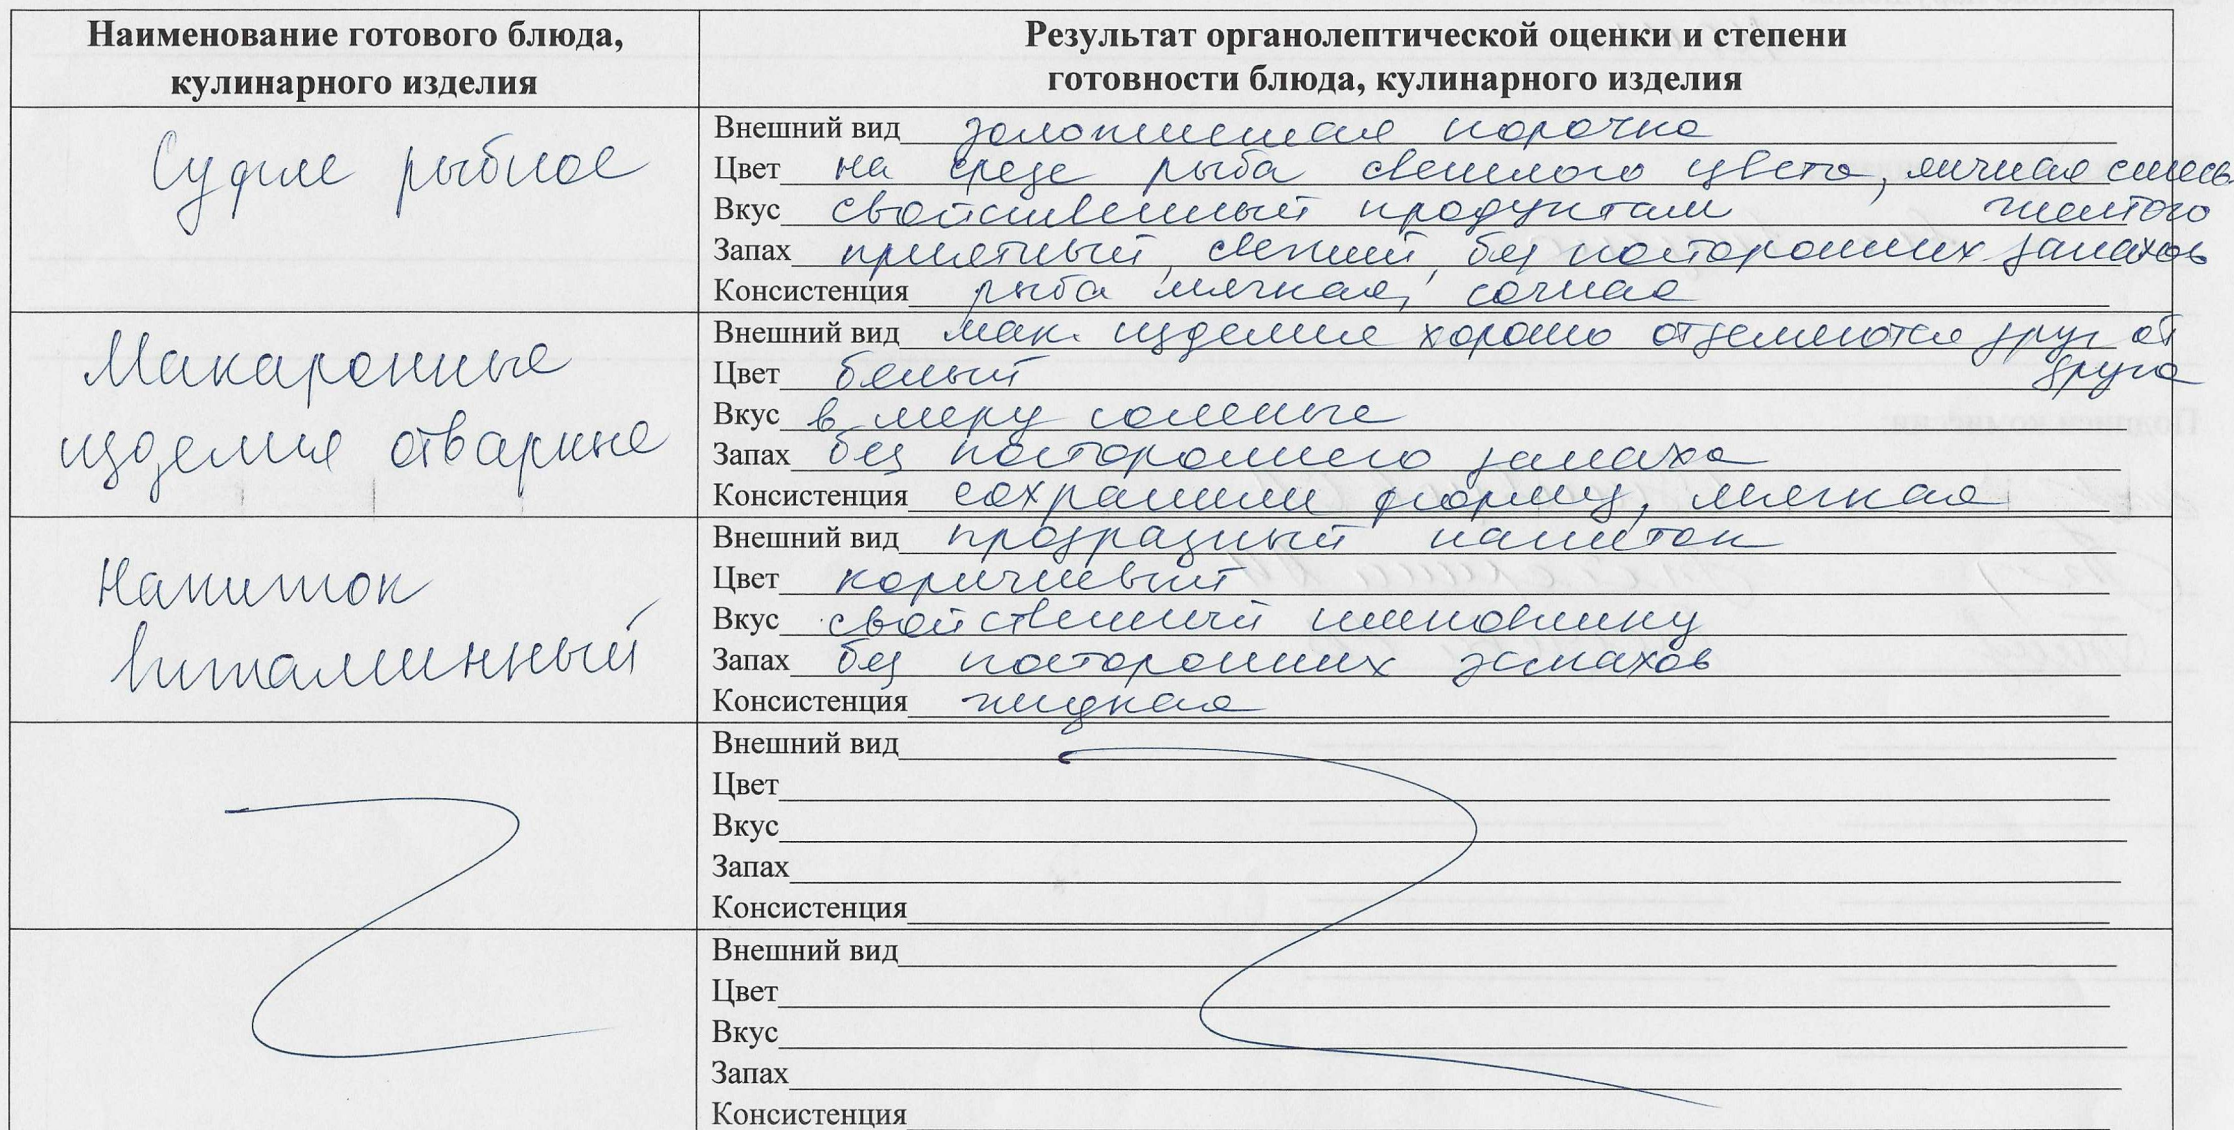 Наименование готового блюда,
кулинарного изделия
Результат органолептической оценки и степени
готовности блюда, кулинарного изделия
Суфле рыбное
Внешний вид золотистая корочка
Цвет на срезе рыба светлого цвета, яичная смесь
желтого
Вкус свойственный продуктам
Запах приятный, свежий, без посторонних запахов
Консистенция рыба мягкая, сочная
Макаронные
изделия отварные
Внешний вид мак. изделия хорошо отделяются друг от
друга
Цвет белый
Вкус в меру соленые
Запах без постороннего запаха
Консистенция сохранили форму, мягкая
Напиток
Витаминный
Внешний вид прозрачный напиток
Цвет коричневый
Вкус свойственный шиповнику
Запах без посторонних запахов
Консистенция жидкая
Внешний вид
Цвет
Вкус
Запах
Консистенция
Внешний вид
Цвет
Вкус
Запах
Консистенция